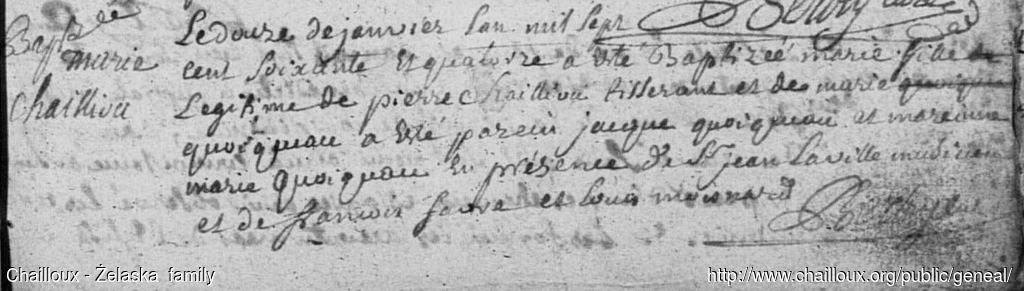 Bapt ée
marie
Chailliou
Le douze de janvier lan mil sept
cent soixante et quatorze a été Baptizeé marie fille
Legitime de pierre Chailliou tisserant et de marie
quoiqueau a été parein jacque quoiqueau et mareinne
marie quoiqueau En présence de Sr jean Laville
et de francois et louis moinard
Chailloux - Żelaska family
http://www.chailloux.org/public/geneal/